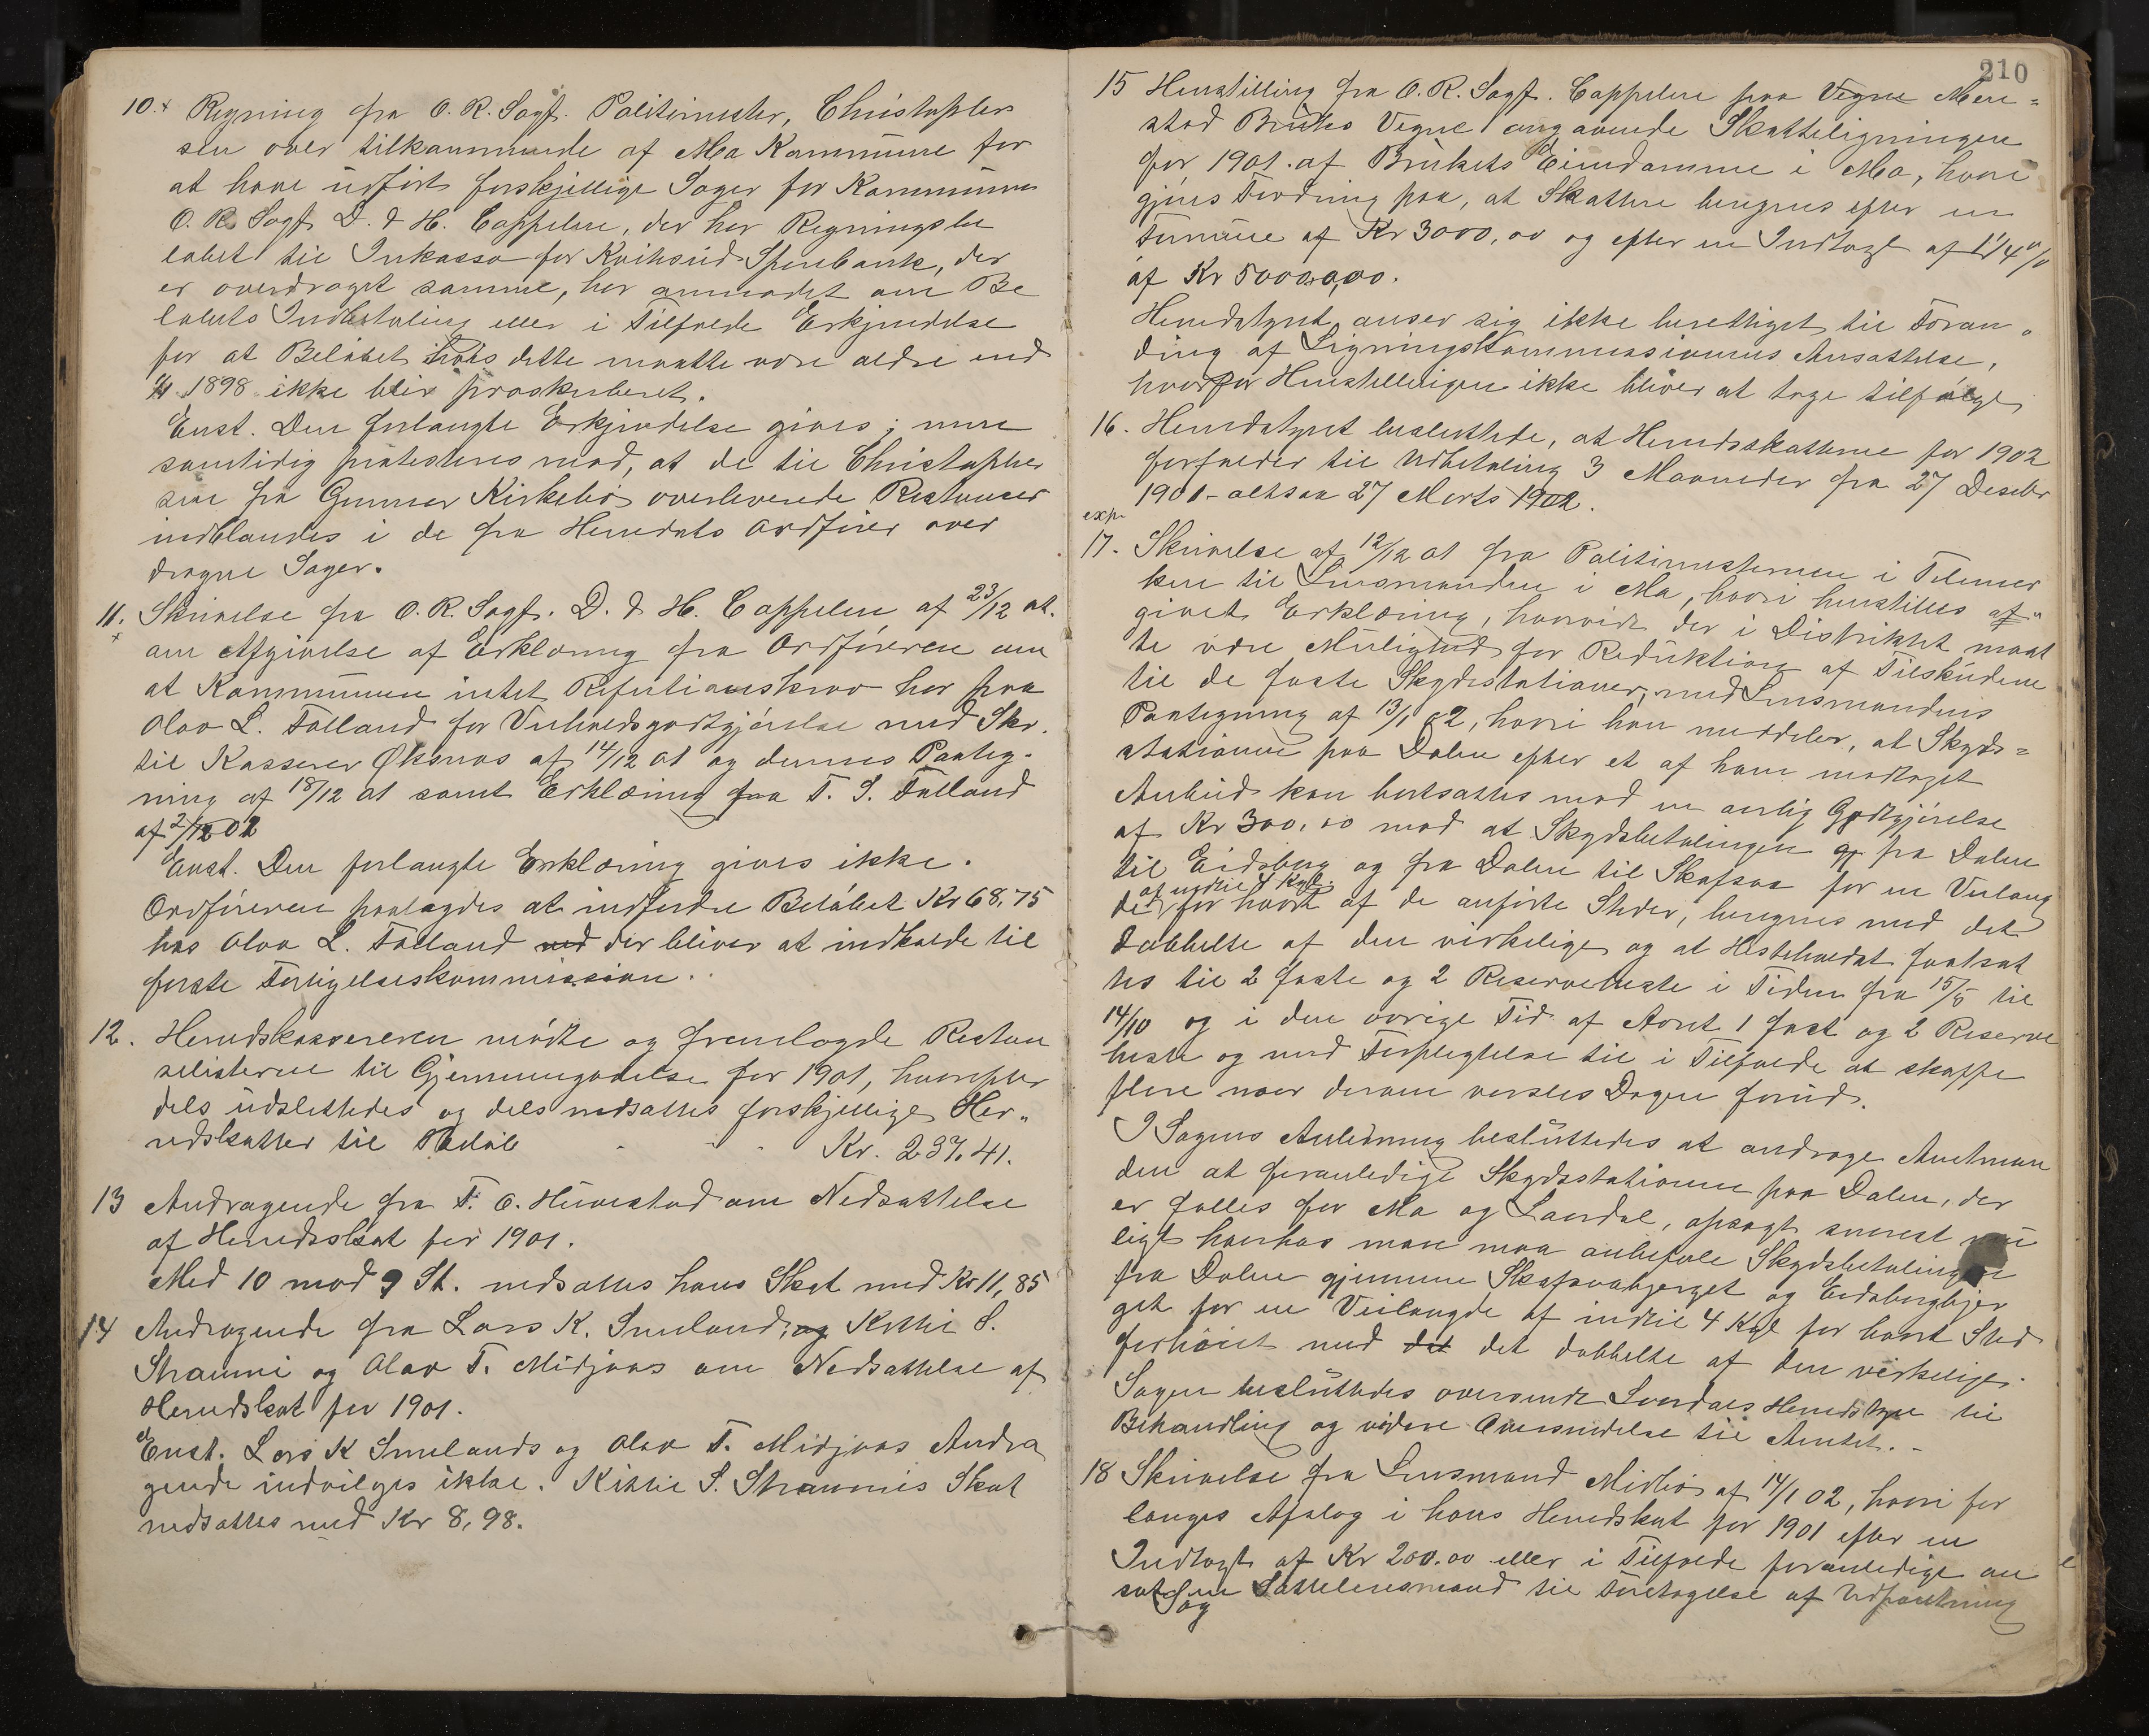 10.x Regning fra O. R. Sagf. Politimester, Christopher
sen over tilkommende af Mo Kommune for
at have udført forskjellige Sager for Kommunen
O. R. Sagf. D. & H. Cappelen, der har Regningsbe
løbet til Inkasso for Kviteseid Sparebank, der
er overdraget samme, har anmodet om Be
løbets Indbetaling eller i Tilfælde Erkjendelse
for at Beløbet hvis dette maatte være ældre end
1898 ikke blir proskriberet.
Enst. Den forlangte Erkjendelse gives; men
samtidig protesteres mod, at de til Christopher
sen fra Gunnar Kirkebø overleverede Restancer
indblandes i de fra Herredets Ordfører over
dragne Sager.
11. Skrivelse fra O. R. Sagf. D. & H. Cappelen af 23/12 01.
x om Afgivelse af Erklæring fra Ordføreren om
at Kommunen intet Refutionskrav har paa
Olav L. Falland for Veihvedsgodtgjørelse med Skr.
til Kasserer Øksnæs af 14/12 01 og dennes Paateg-
ning af 18/12 01 samt Erklæring fra T. S. Falland
af 2/1 02
Enst. Den forlangte Erklæring gives ikke.
Ordføreren paalagdes at indfordre Beløbet Kr 68,75
hos Olav L. Falland ved der bliver at indkalde til
første Forligelseskommission.
12. Herredskassereren mødte og fremlagde Restan
selisterne til Gjennemgaaelse for 1901, hvorefter
dels udslettedes og dels nedsattes forskjellige Her„
redskatter til Beløb - - - Kr. 237,41.
13 Andragende fra T. O. Huvestad om Nedsættelse
af Herredsskat for 1901.
Med 10 mod 9 St. nedsattes hans Skat med Kr 11,85
14 Andragende fra Lars K. Smeland, og Kittil S.
Straumi og Olav T. Midjaas om Nedsættelse af
Herredskat for 1901.
Enst. Lars K Smelands og Olav T. Midjaas Andra
gende indvilges ikke. Kittil S. Straumis Skat
nedsattes med Kr 8,98.
210
15 Henstilling fra O. R. Sagf. Cappelen paa Vegne Mere=
stad Brugs Vegne angaaende Skatteligningen
for 1901 af Brukets Eiendomme i Mo, hvori
gjøres Fordring paa, at Skatten beregnes efter en
Formue af Kr 3000,00 og efter en Indtægt af 1 1/4 %
af Kr 5000,00.
Herredstyret anser sig ikke berettiget til Foran„
dring af Ligningskommissionens Ansættelse,
hvorfor Henstillingen ikke bliver at tage tilfølge
16. Herredstyret besluttede, at Herredsskatterne for 1902
forfalder til Udbetaling 3 Maaneder fra 27 Desebr
1901 - altsaa 27 Marts 1902.
exp.
17. Skrivelse af 12/12 01 fra Politimesteren i Telemar
ken til Lensmanden i Mo, hvori henstilles af„
givet Erklæring, hvorvidt der i Distriktet maat
te være Mulighed for Reduktion af Tilskudene
til de faste Skydsstationer, med Lensmandens
Paategning af 13/1 02, hvori han meddeler, at Skyds=
stationen paa Dalen efter et af ham modtaget
Anbud kan bortsættes mod en aarlig Godtgjørelse
af Kr 300,00 mod at Skydsbetalingen fra Dalen
til Eidsborg og fra Dalen til Skafsaa for en Veilæng
af indtil 4 Kgl.
de for hvert af de anførte Steder, beregnes med det
dobbelte af den virkelige og at Hesteholdet fastsæt
tes til 2 faste og 2 Reserveheste i Tiden fra 15/5 til
14/10 og i den øvrige Tid af Aaret 1 fast og 2 Reserve
heste og med Forpligtelse til i Tilfælde at skaffe
flere naar derom varsles Dagen forud.
I Sagens Anledning besluttedes at andrage Amtman
den at foranledige Skydsstationen paa Dalen, der
er fælles for Mo og Laurdal, opsagt snarest mu
ligt hvorhos man maa anbefale Skydsbetalingen
fra Dalen gjennem Skafsaabjerget og Eidsborgbjer
get for en Veilængde af indtil 4 Kgl for hvert Sted
forhøiet med det det dobbelte af den virkelige.
Sagen besluttedes oversendt Laurdals Herredstyre til
Behandling og videre Oversendelse til Amtet. -
18 Skrivelse fra Lensmand Midbø af 14/1 02, hvori for
langes Afslag i hans Herredskat for 1901 efter en
Indtægt af Kr 200.00 eller i Tilfælde foranledige an
sat en Sættelensmand til Foretagelse af Udpantning
Sag